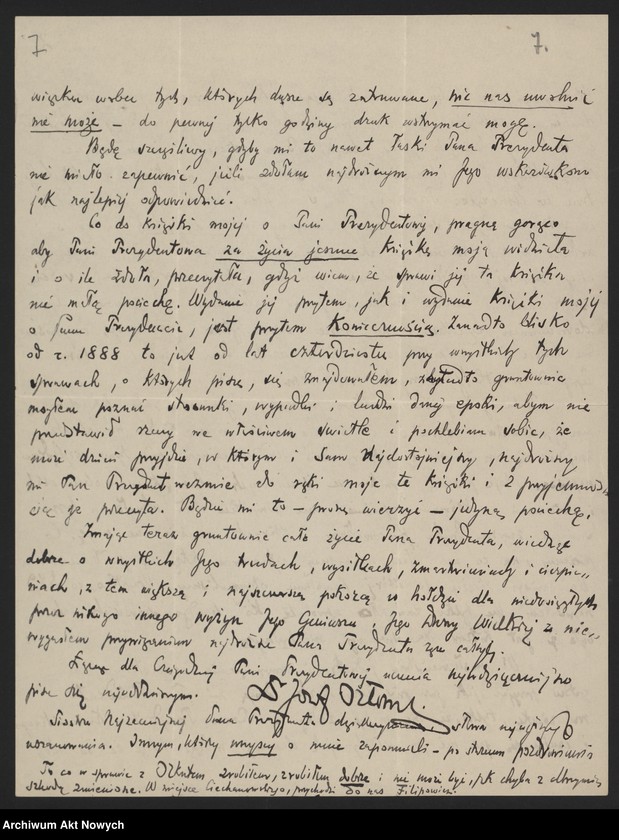 7 7.
wobec tych, których dusze są zatruwane, nic nas uwolnić
nie może – do pewnej tylko godziny druk wstrzymać mogę.
Będę szczęśliwy, gdyby mi to nawet łaski Pana Prezydenta
nie miało zapewnić, jeśli zdołam najdroższym mi Jego wskazówkom
jak najlepiej odpowiedzieć.
Co do książki mojej o Pani Prezydentowej, pragnę gorąco
aby Pani Prezydentowa za życia jeszcze książkę moją widziała
i o ile zdoła, przeczytała, gdyż wiem, że sprawi jej ta książka
nie małą pociechę. Wydanie jej przytem, jak i wydanie książki mojej
o Panu Prezydencie, jest przytem Koniecznością. Zanadto blisko
od r. 1888 to już od lat czterdziestu przy wszystkich tych
sprawach, o których piszę, się znajdowałem, zanadto gruntownie
mogłem poznać stosunki, wypadki i ludzi danej epoki, abym nie
przedstawił rzeczy we właściwem świetle i pochlebiam sobie, że
może dzień przyjdzie, w którym i Sam Najdostojniejszy, najdroższy
mi Pan Prezydent weźmie do ręki moje te książki i z przyjemnoś-
cią je przeczyta. Będzie mi to – proszę wierzyć – jedyną pociechą.
Znając teraz gruntownie całe życie Pana Prezydenta, wiedząc
dobrze o wszystkich Jego trudach, wysiłkach, zmartwieniach i cierpie„
niach, z tem większą i najszczerszą pokorą w hołdzie dla niedosięgłych
przez nikogo innego wyżyn Jego Geniusza i Jego Duszy Wielkiej z nie„
wygasłem przywiązaniem najdroższe Pana Prezydenta ręce całuję.
Łącząc dla Czcigodnej Pani Prezydentowej uczucia najwdzięczniejsze
piszę się najoddańszym.
Dr Józef Orłowski.
Siostrze Najzacniejszej Pana Prezydenta słowa
uszanowania. Innym, którzy wszyscy o mnie zapomnieli – po staremu pozdrowienia
To co w sprawie z zrobiłem, zrobiłem dobrze i nie może być, jak chyba z olbrzymią
szkodą zmienione. W miejsce Ciechanowskiego, przychodzi do nas Filipowicz.
Archiwum Akt Nowych